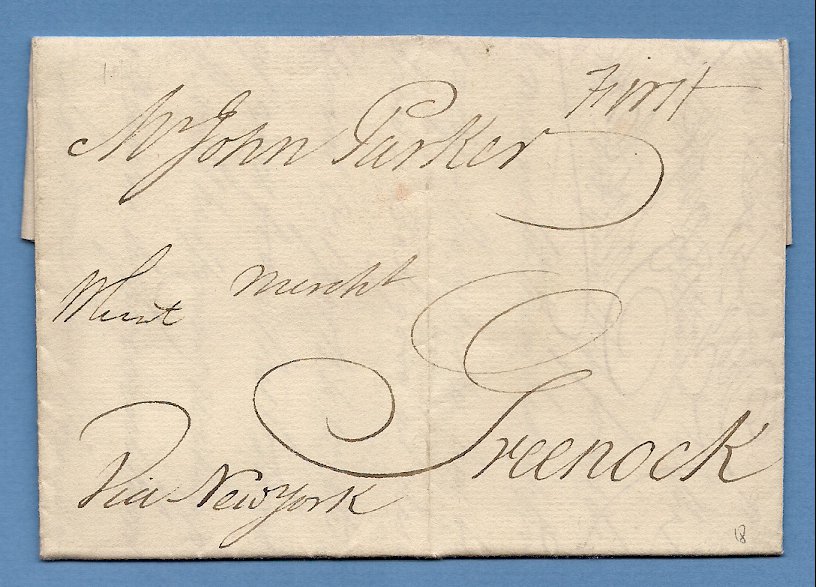 First
Mr John Parker
mercht
Greenock
Via New York
18